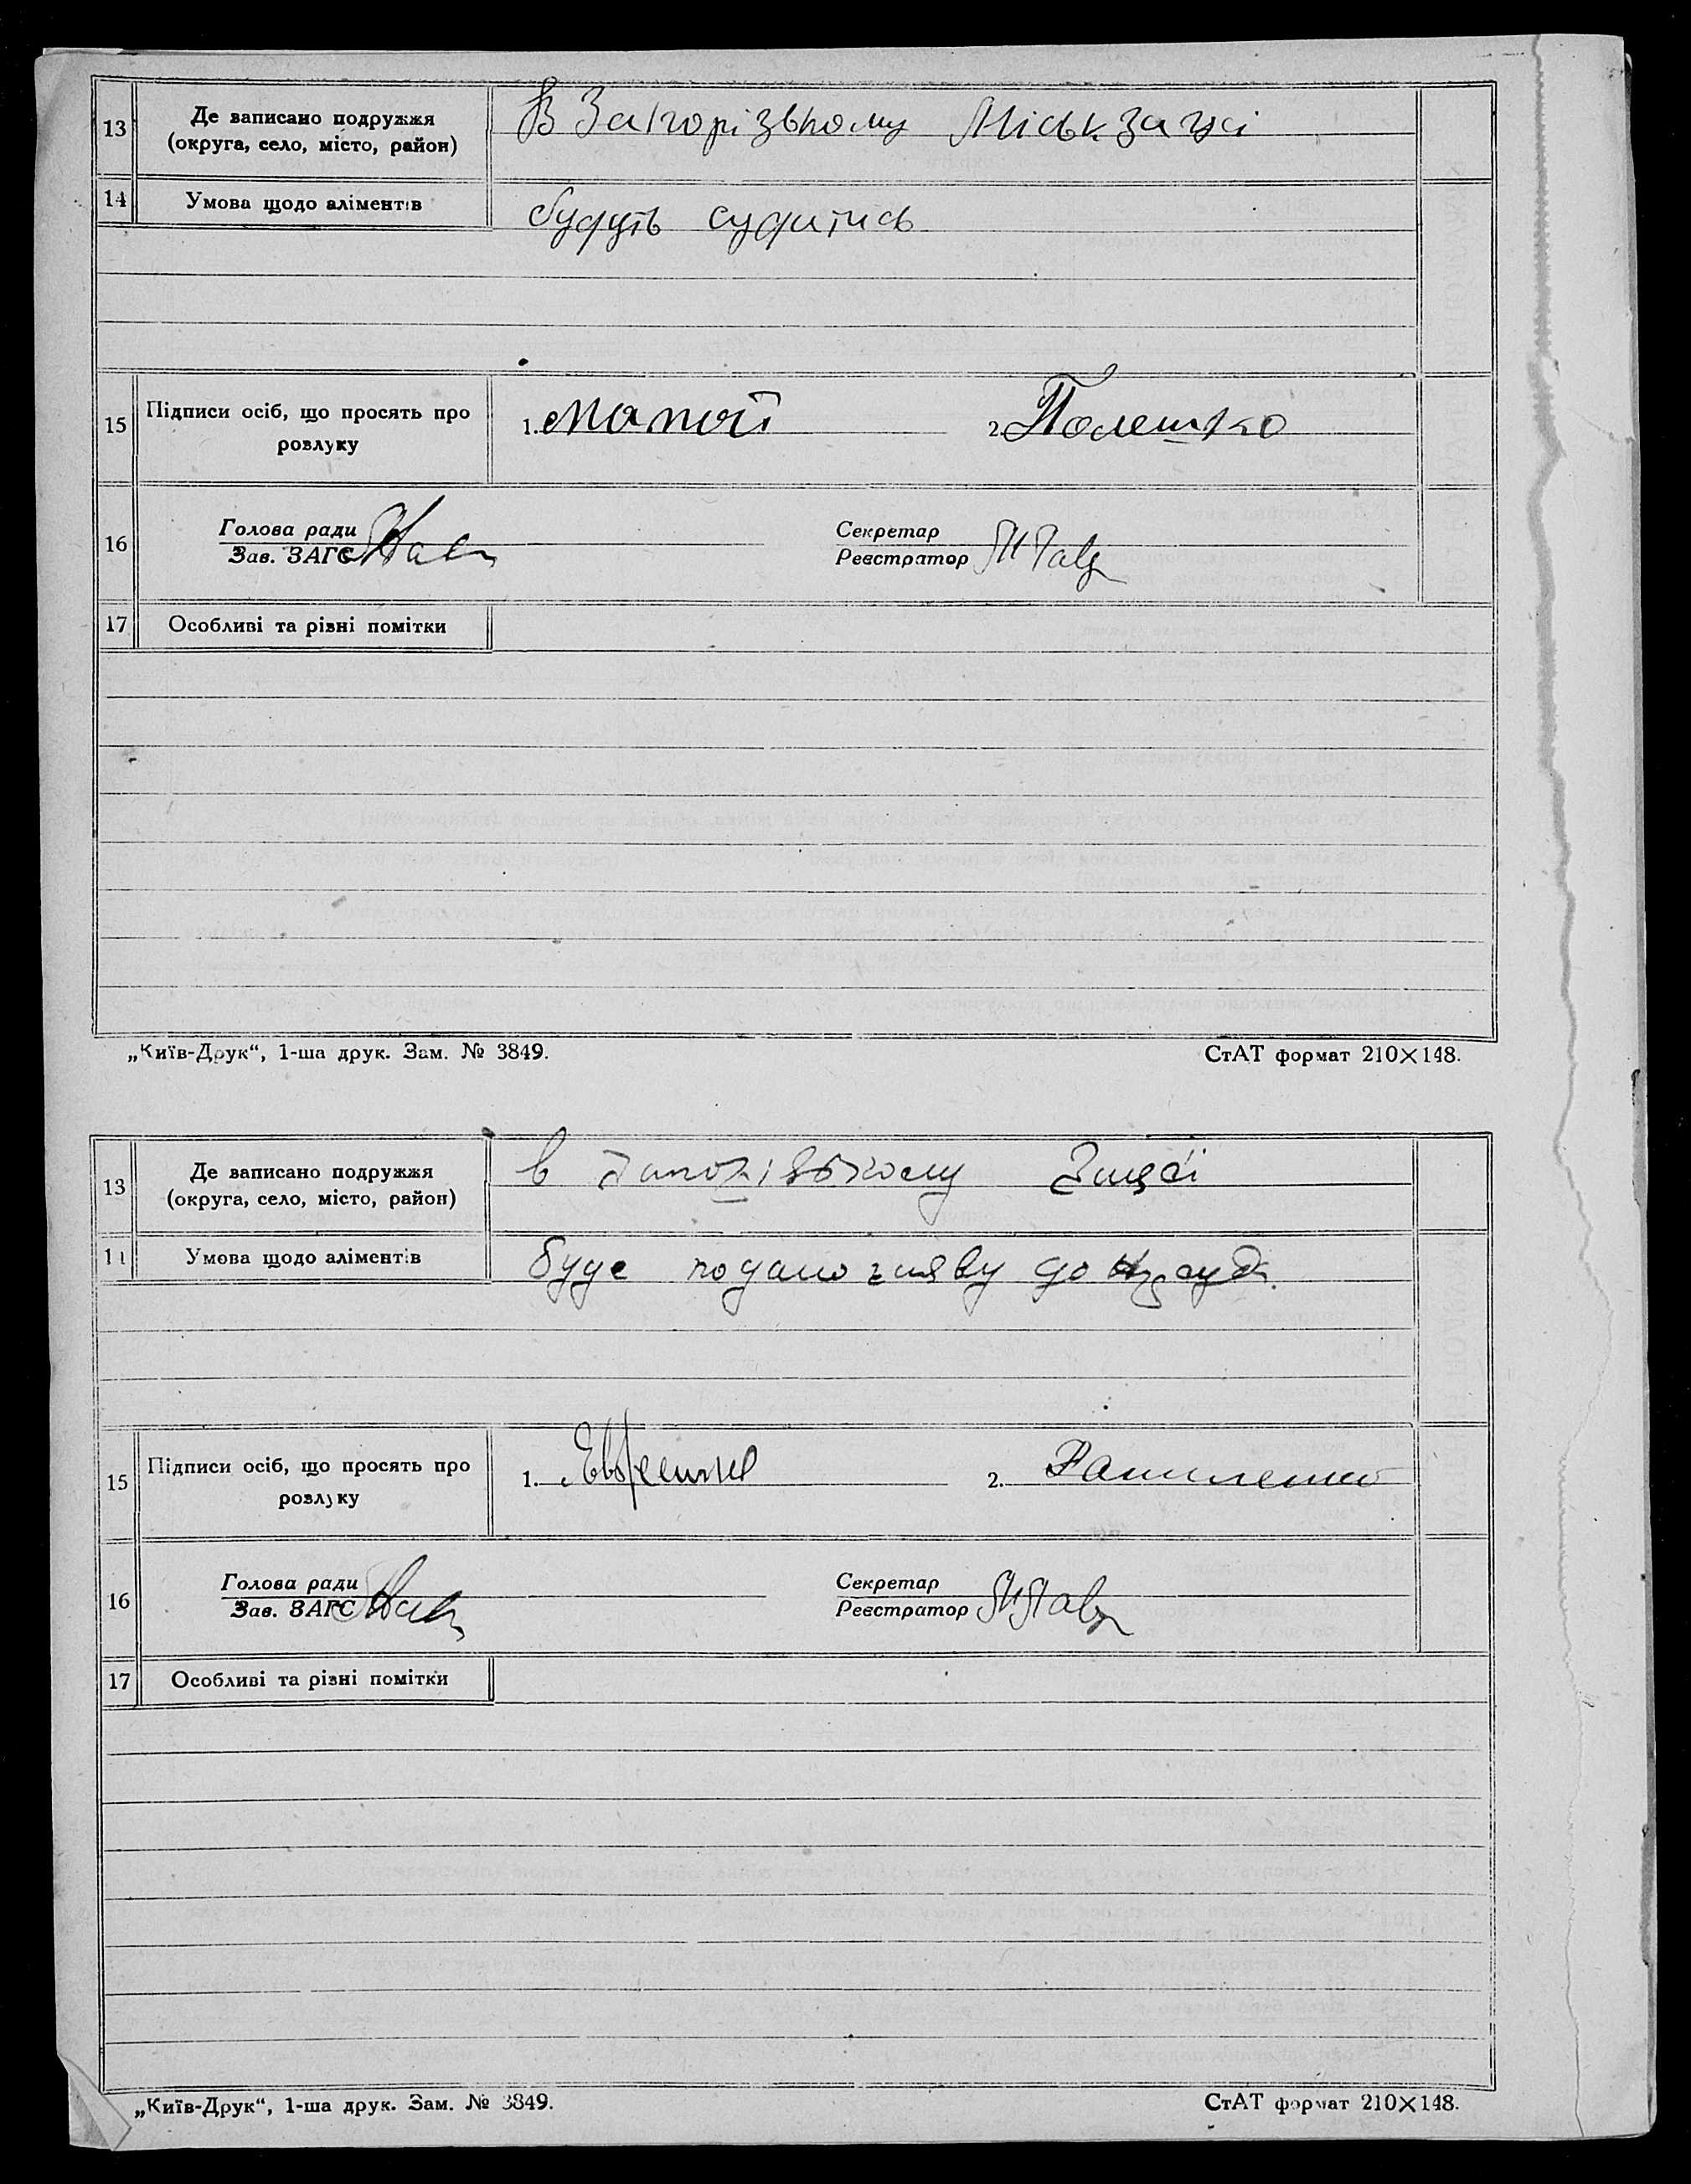 13 Де записано подружжя В Запорізькому Міськзагсі
(округа, село, місто, район)
14 Умова щодо аліментів будуть судитись
15 Підписи осіб, що просять про 1. 2. Полешко
розлуку
16 Голова ради Секретар
Зав. ЗАГС Реєстратор
17 Особливі та різні помітки
„Київ-Друк“, 1-ша друк. Зам. № 3849. СтАТ формат 210×148.
13 Де записано подружжя в Запорізькому Загсі
(округа, село, місто, район)
14 Умова щодо аліментів буде подано заяву до суда.
15 Підписи осіб, що просять про 1. 2.
розлуку
16 Голова ради Секретар
Зав. ЗАГС Реєстратор
17 Особливі та різні помітки
„Київ-Друк“, 1-ша друк. Зам. № 3849. СтАТ формат 210×148.